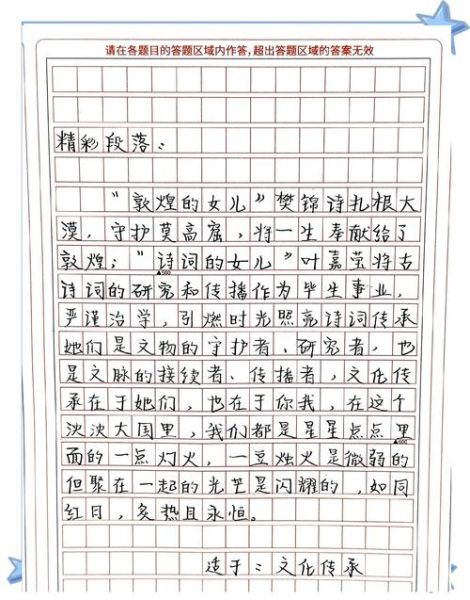 请在各题目的答题区域内作答，超出答题区域的答案无效
精彩段落：
“敦煌的女儿”樊锦诗扎根大
漠，守护莫高窟，将一生奉献给了
敦煌；“诗词的女儿”叶嘉莹将古
诗词的研究和传播作为毕生事业，
严谨治学，引燃时光照亮诗词传承
她们是文物的守护者、研究者，也
是文脉的接续者、传播者，文化传
承在于她们，也在于你我，在这个
泱泱大国里，我们都是星星点点里
面的一点灯火，一豆烛火是微弱的
但聚在一起的光芒是闪耀的，如同
红日，炙热且永恒。
适于：文化传承